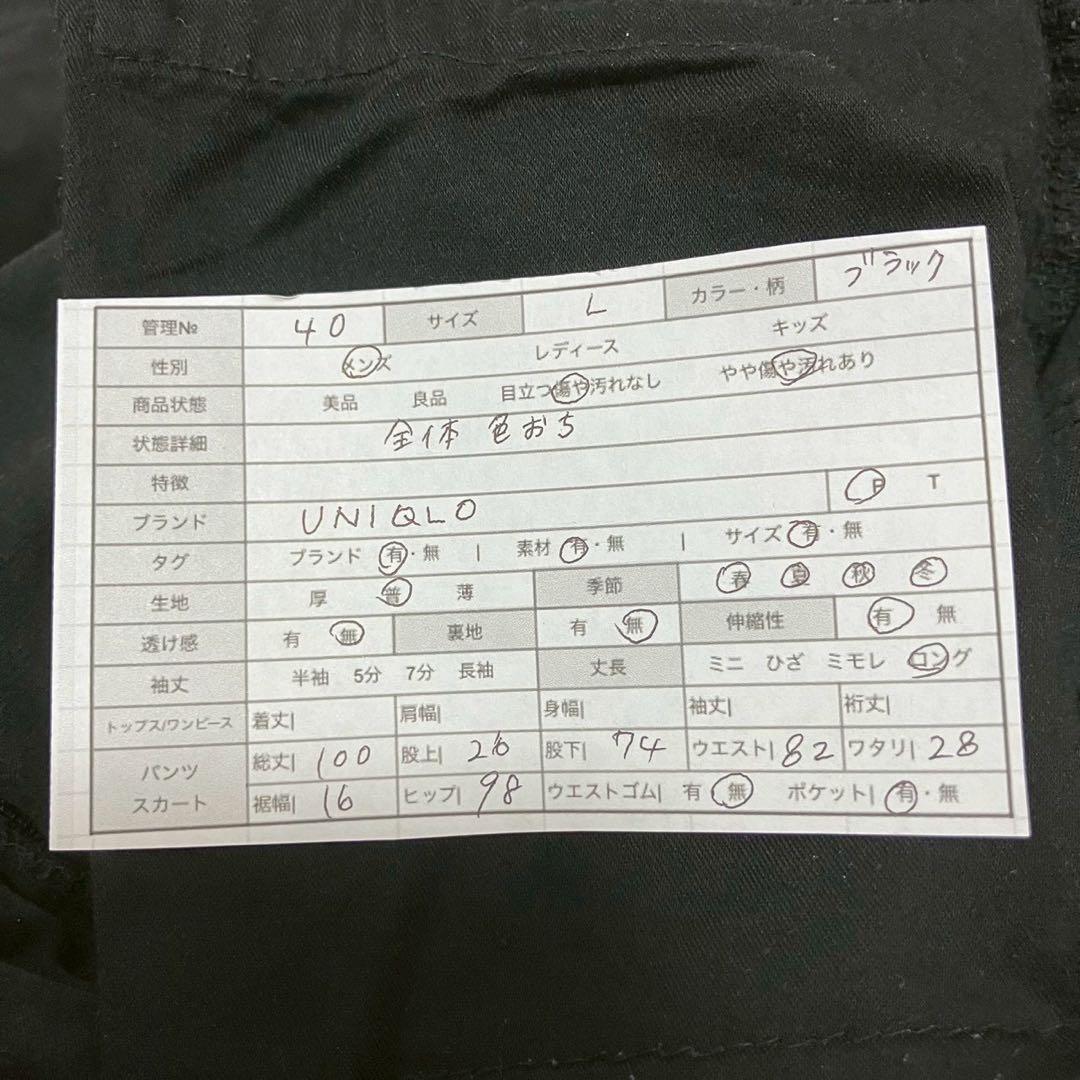 管理№ 40 サイズ L カラー・柄 ブラック
性別 メンズ レディース キッズ
商品状態 美品 良品 目立つ傷や汚れなし やや傷や汚れあり
状態詳細 全体 色おち
特徴
ブランド UNIQLO P T
タグ ブランド 有・無 | 素材 有・無 | サイズ 有・無
生地 厚 普 薄 季節 春 夏 秋 冬
透け感 有 無 裏地 有 無 伸縮性 有 無
袖丈 半袖 5分 7分 長袖 丈長 ミニ ひざ ミモレ ロング
トップス/ワンピース 着丈| 肩幅| 身幅| 袖丈| 裄丈|
パンツ 総丈| 100 股上| 26 股下| 74 ウエスト| 82 ワタリ| 28
スカート 裾幅| 16 ヒップ| 98 ウエストゴム| 有 無 ポケット| 有・無